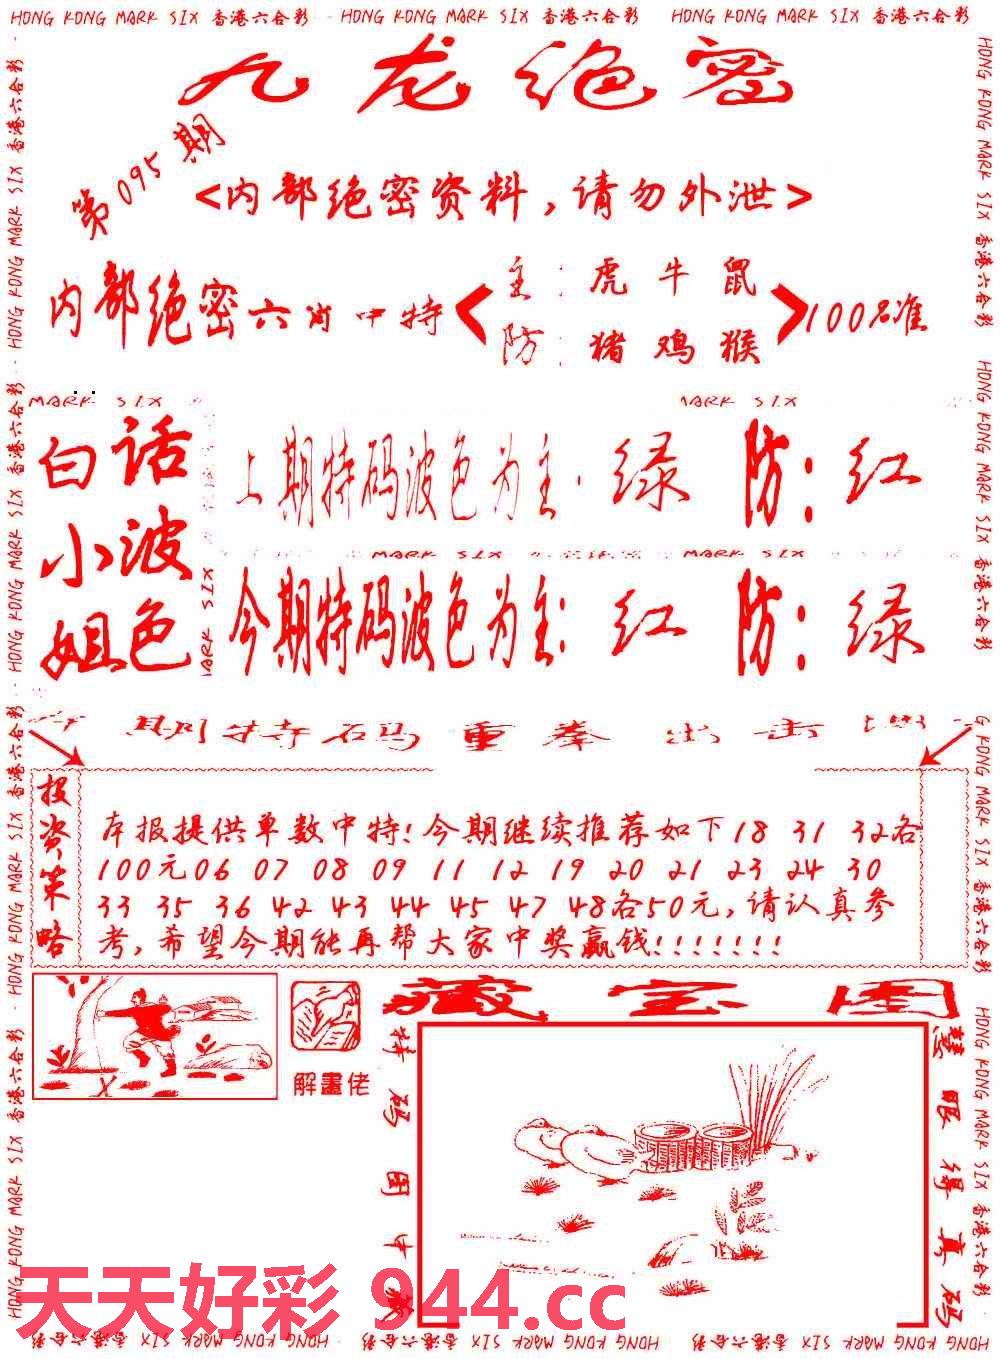 HONG KONG MARK SIX 香港六合彩 HONG KONG MARK SIX 香港六合彩 HONG KONG MARK SIX 香港六合彩
九龙绝密
第095期
<内部绝密资料,请勿外泄>
内部绝密六肖中特
主:虎 牛 鼠
防:猪 鸡 猴
100%准
MARK SIX
MARK SIX
白话
小波
姐色
上期特码波色为主:绿 防:红
MARK SIX
MARK SIX
今期特码波色为主:红 防:绿
MARK SIX
期特码重拳出击
投资策略
本报提供单数中特!今期继续推荐如下18 31 32各
100元06 07 08 09 11 12 19 20 21 23 24 30
33 35 36 42 43 44 45 47 48各50元,请认真参
考,希望今期能再帮大家中奖赢钱!!!!!!!
解畫佬
藏宝图
特码图中
慧眼得真码
天天好彩 944.cc
HONG KONG MARK SIX 香港六合彩 HONG KONG MARK SIX 香港六合彩 HONG KONG MARK SIX 香港六合彩